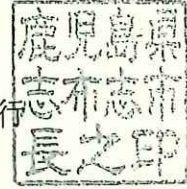 鹿児島県
志布志市
長之印
行